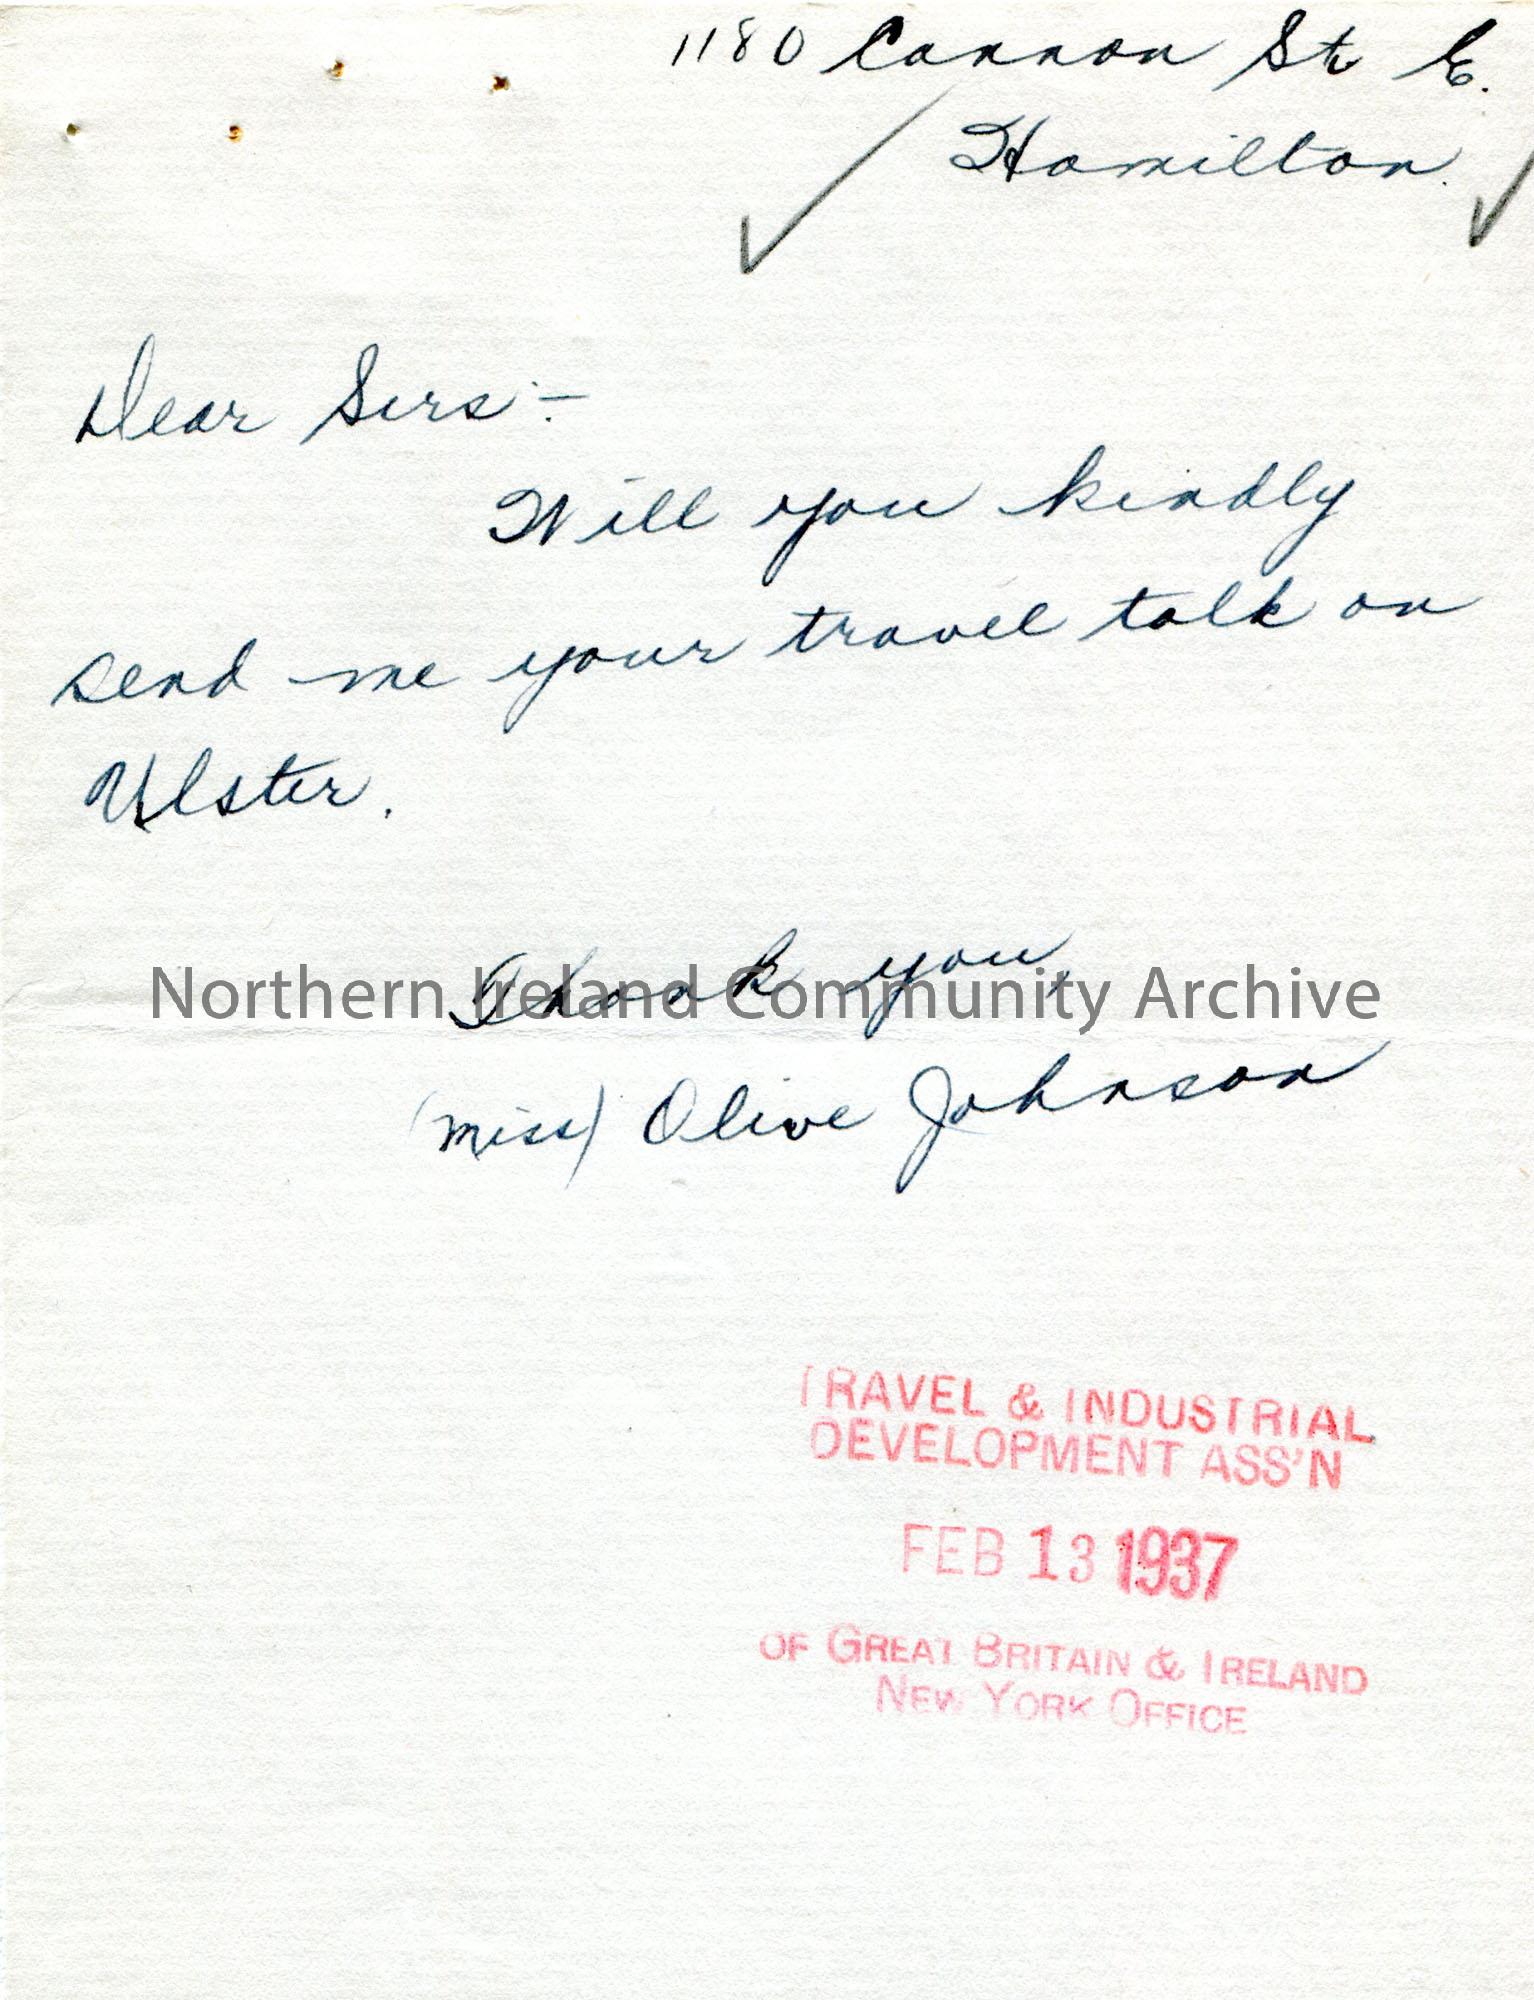 1180 Cannon St. E.
Hamilton.
Dear Sirs:-
Will you kindly
send me your travel talk on
Ulster.
Thank you,
Northern Ireland Community Archive
(Miss) Olive Johnson
TRAVEL & INDUSTRIAL
DEVELOPMENT ASS'N
FEB 13 1937
OF GREAT BRITAIN & IRELAND
NEW YORK OFFICE